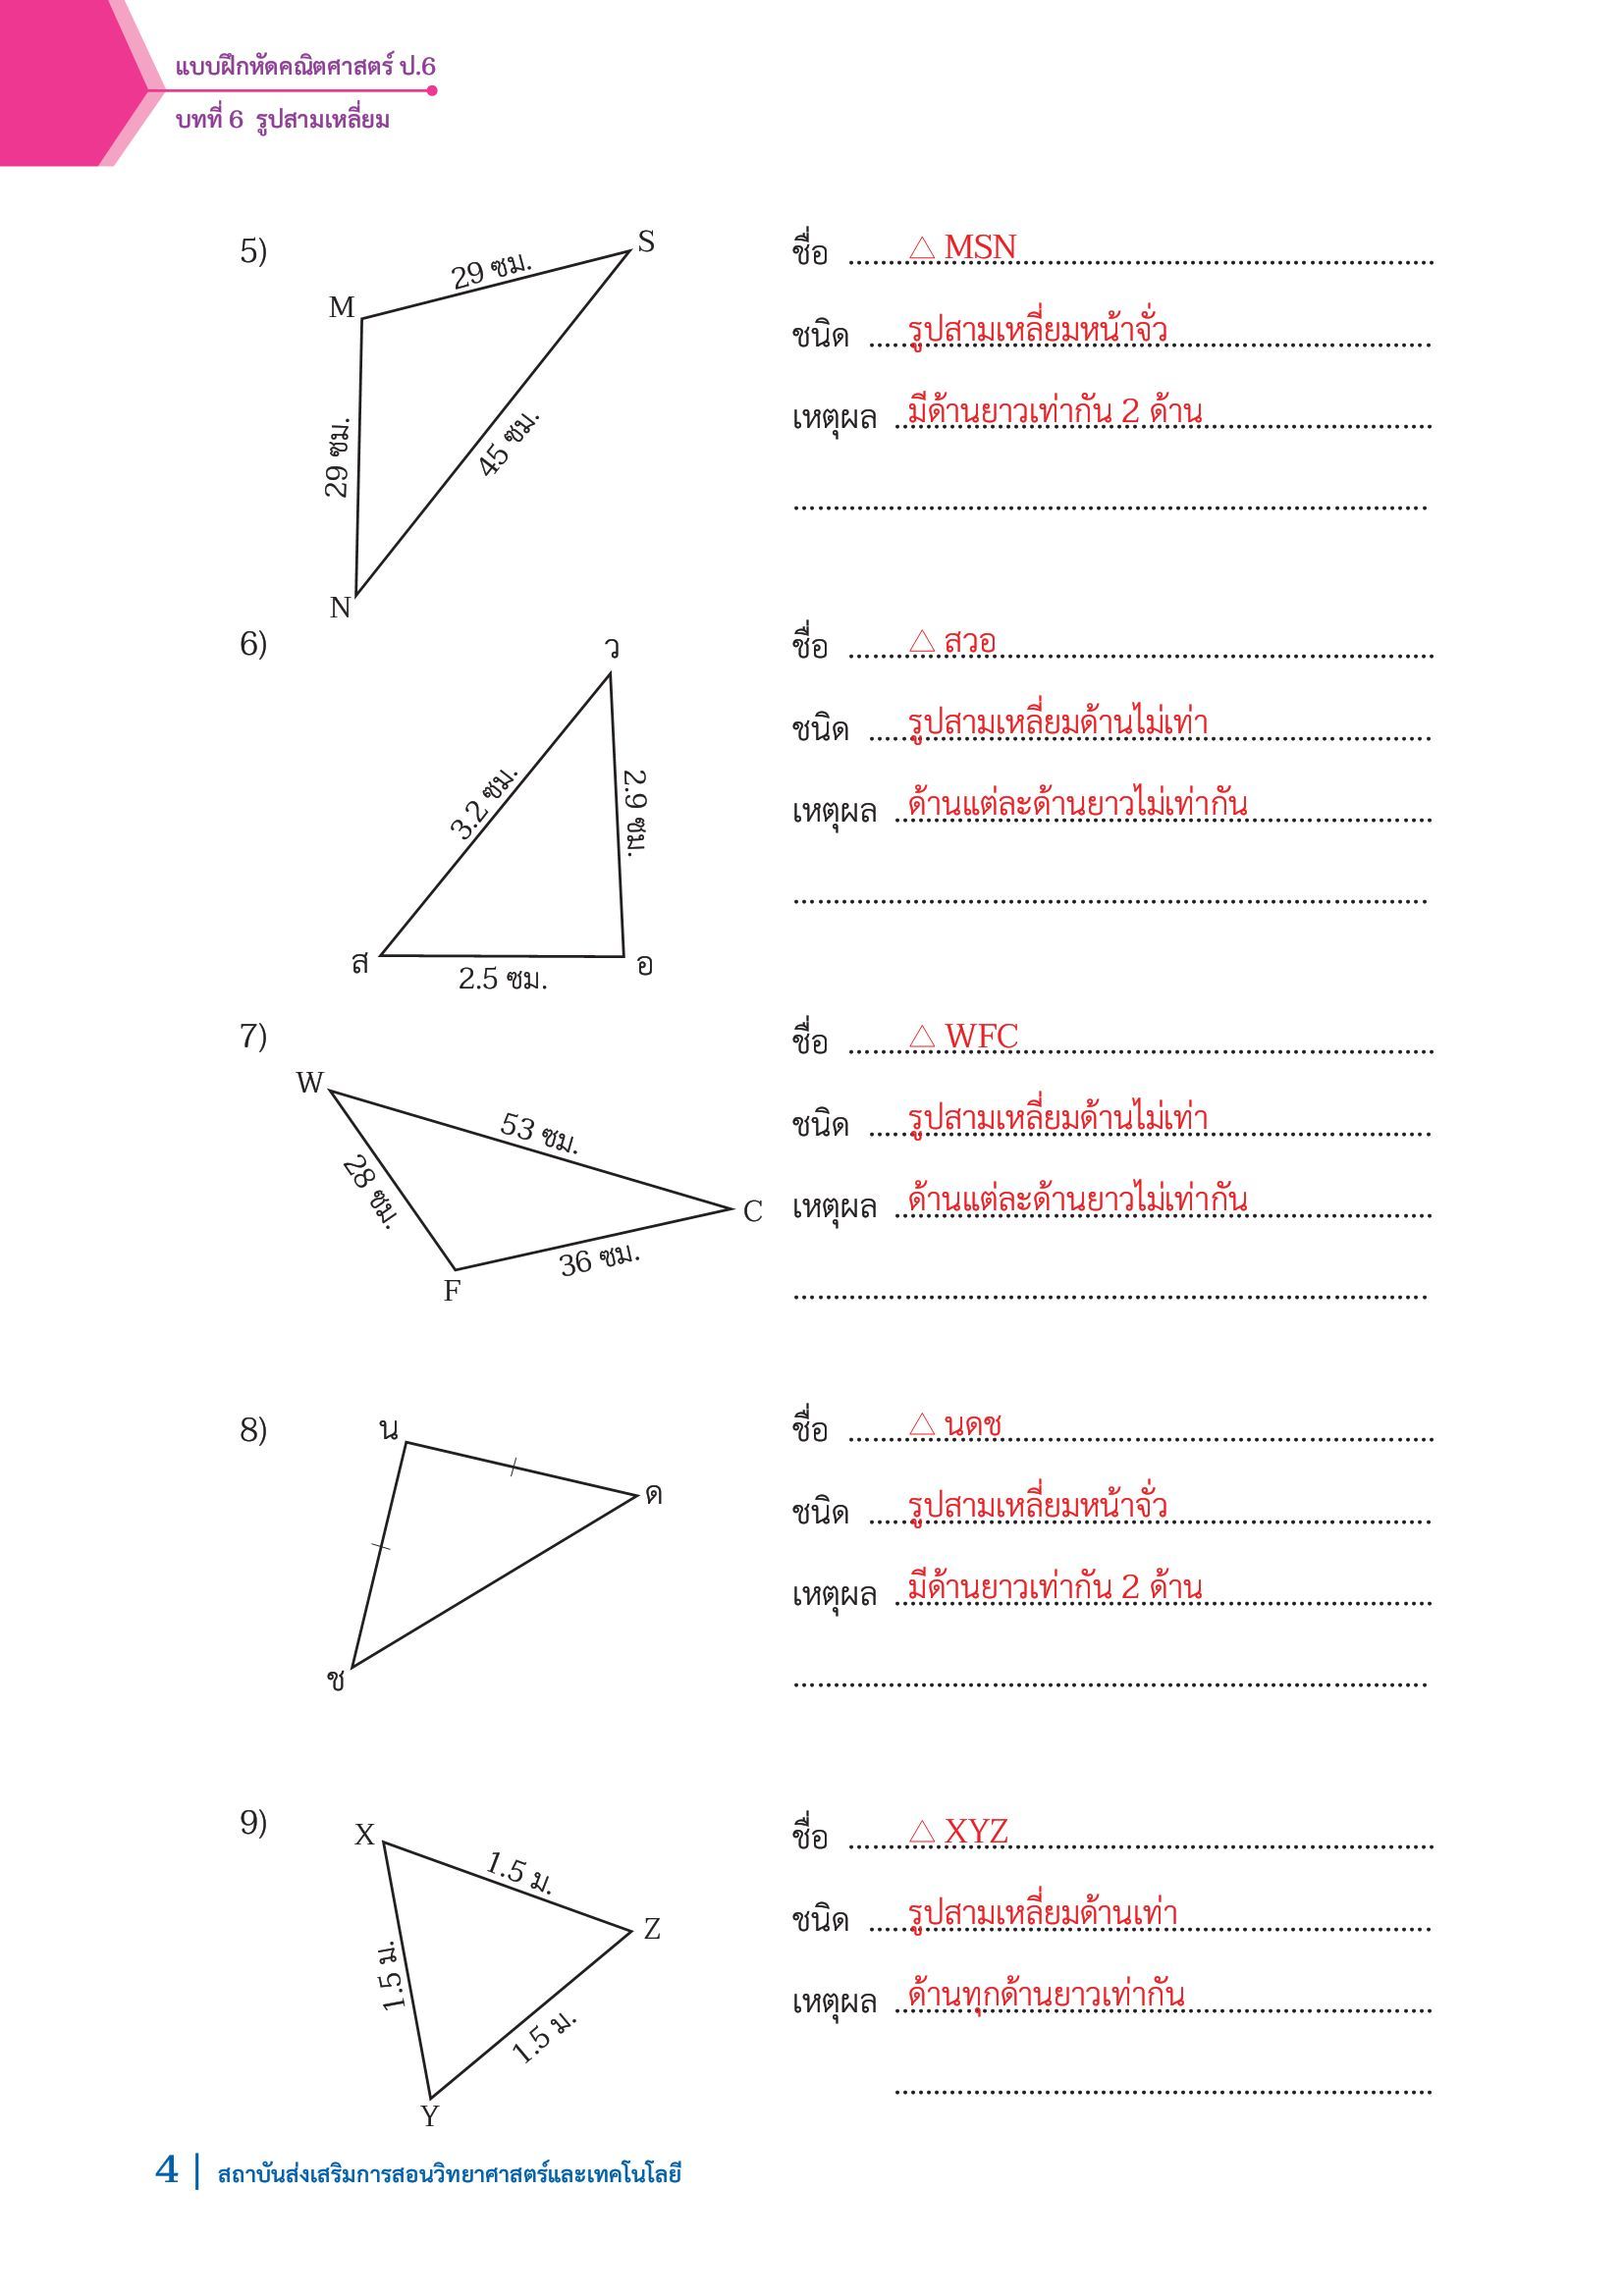 แบบฝึกหัดคณิตศาสตร์ ป.6
บทที่ 6 รูปสามเหลี่ยม
5)
S
29 ซม.
M
29 ซม.
45 ซม.
N
ชื่อ △ MSN
ชนิด รูปสามเหลี่ยมหน้าจั่ว
เหตุผล มีด้านยาวเท่ากัน 2 ด้าน
6)
ว
3.2 ซม.
2.9 ซม.
ส
อ
2.5 ซม.
ชื่อ △ สวอ
ชนิด รูปสามเหลี่ยมด้านไม่เท่า
เหตุผล ด้านแต่ละด้านยาวไม่เท่ากัน
7)
W
53 ซม.
28 ซม.
C
36 ซม.
F
ชื่อ △ WFC
ชนิด รูปสามเหลี่ยมด้านไม่เท่า
เหตุผล ด้านแต่ละด้านยาวไม่เท่ากัน
8)
น
ด
ช
ชื่อ △ นดช
ชนิด รูปสามเหลี่ยมหน้าจั่ว
เหตุผล มีด้านยาวเท่ากัน 2 ด้าน
9)
X
1.5 ม.
Z
1.5 ม.
1.5 ม.
Y
ชื่อ △ XYZ
ชนิด รูปสามเหลี่ยมด้านเท่า
เหตุผล ด้านทุกด้านยาวเท่ากัน
4 | สถาบันส่งเสริมการสอนวิทยาศาสตร์และเทคโนโลยี